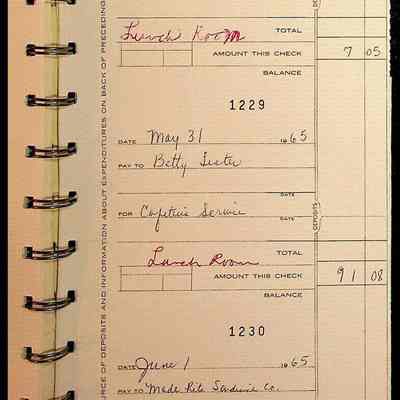 DE
Lunch Room TOTAL
AMOUNT THIS CHECK 7 05
BALANCE
1229
DATE May 31 1965
PAY TO Betty Lester
DATE
FOR Cafeteria Service DATE
DEPOSITS
Lunch Room TOTAL
AMOUNT THIS CHECK 91 08
BALANCE
1230
DATE June 1 1965
PAY TO Made Rite Sardine Co.
RCE OF DEPOSITS AND INFORMATION ABOUT EXPENDITURES ON BACK OF PRECEDING